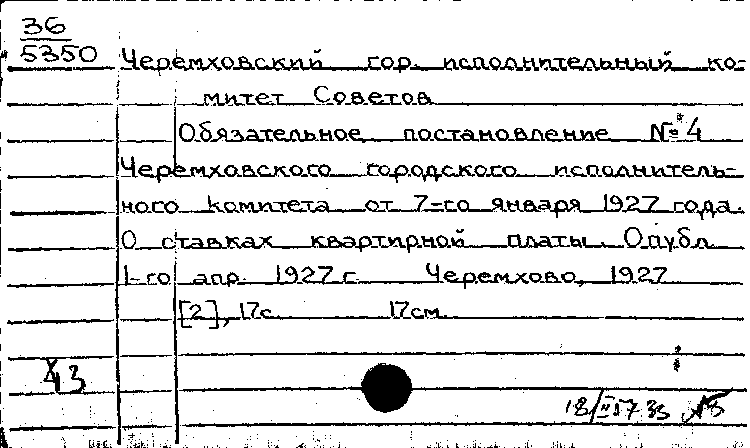 36
5350
Черемховский гор. исполнительный ко-
митет Советов
Обязательное постановление № 4
Черемховского городского исполнитель-
ного комитета от 7-го января 1927 года.
О ставках квартирной платы. Опубл.
1-го апр. 1927 г. Черемхово, 1927
[2], 17с. 17см.
43
18/II 57